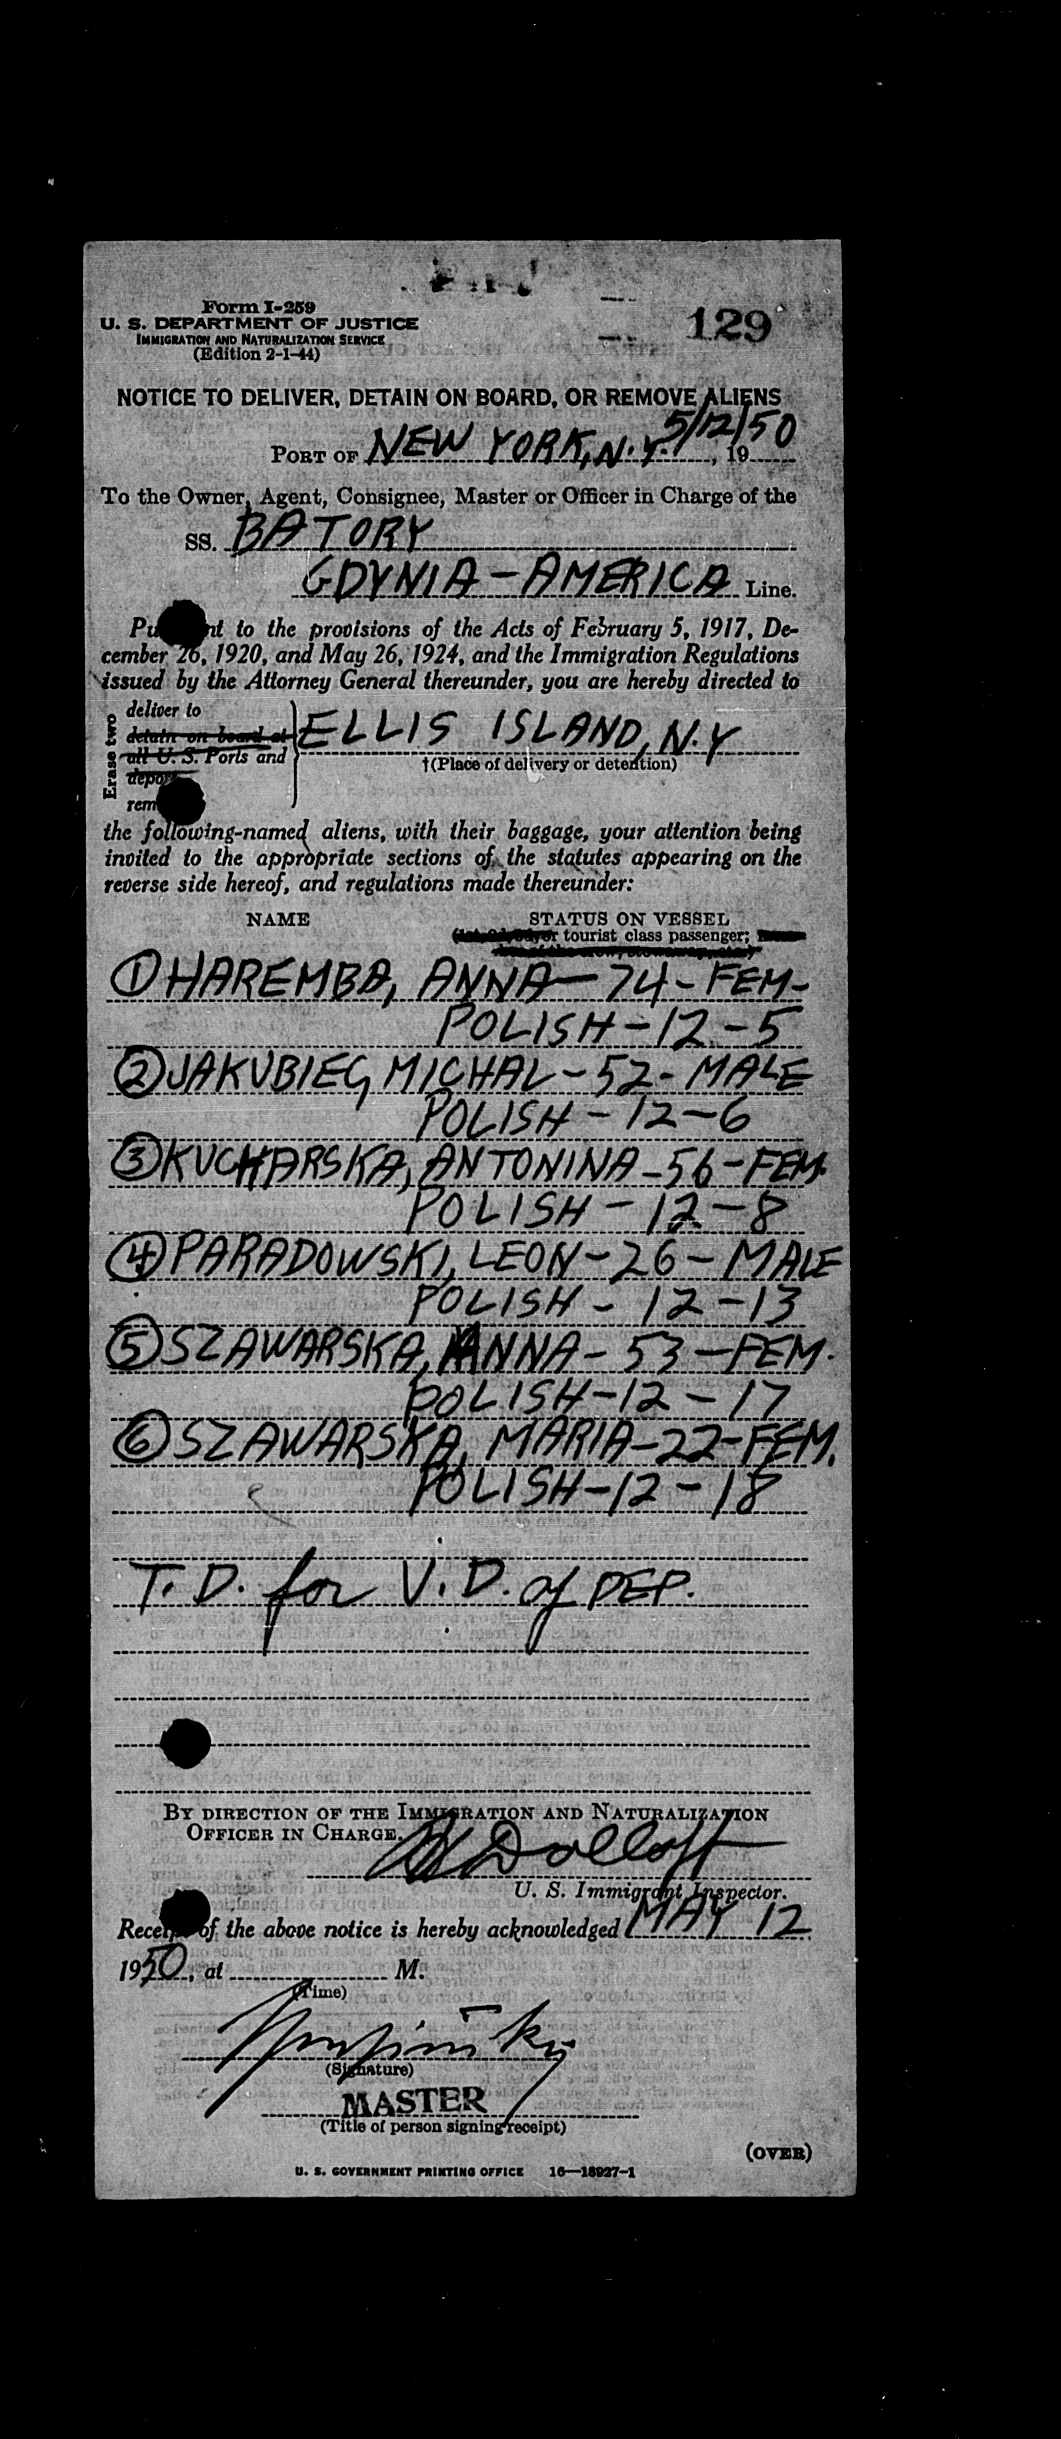 Form I-259
U. S. DEPARTMENT OF JUSTICE
IMMIGRATION AND NATURALIZATION SERVICE
(Edition 2-1-44)
129
NOTICE TO DELIVER, DETAIN ON BOARD, OR REMOVE ALIENS
PORT OF NEW YORK, N.Y. 5/12/50, 19
To the Owner, Agent, Consignee, Master or Officer in Charge of the
SS. BATORY
GDYNIA-AMERICA Line.
to the provisions of the Acts of February 5, 1917, De-
cember 26, 1920, and May 26, 1924, and the Immigration Regulations
issued by the Attorney General thereunder, you are hereby directed to
Erase two
deliver to
detain on board at
all U. S. Ports and
ELLIS ISLAND, N.Y
†(Place of delivery or detention)
the following-named aliens, with their baggage, your attention being
invited to the appropriate sections of the statutes appearing on the
reverse side hereof, and regulations made thereunder:
NAME STATUS ON VESSEL
or tourist class passenger;
① HAREMBA, ANNA-74-FEM-
POLISH-12-5
② JAKUBIEC, MICHAL-52-MALE
POLISH-12-6
③ KUCHARSKA, ANTONINA-56-FEM.
POLISH-12-8
④ PARADOWSKI, LEON-26-MALE
POLISH-12-13
⑤ SZAWARSKA, ANNA-53-FEM.
POLISH-12-17
⑥ SZAWARSKA, MARIA-22-FEM.
POLISH-12-18
T. D. for V. D. of DEP.
BY DIRECTION OF THE IMMIGRATION AND NATURALIZATION
OFFICER IN CHARGE.
Dolloff
U. S. Immigrant Inspector.
Receipt of the above notice is hereby acknowledged MAY 12
1950, at M.
(Time)
(Signature)
MASTER
(Title of person signing receipt)
(OVER)
U. S. GOVERNMENT PRINTING OFFICE 16—18927-1